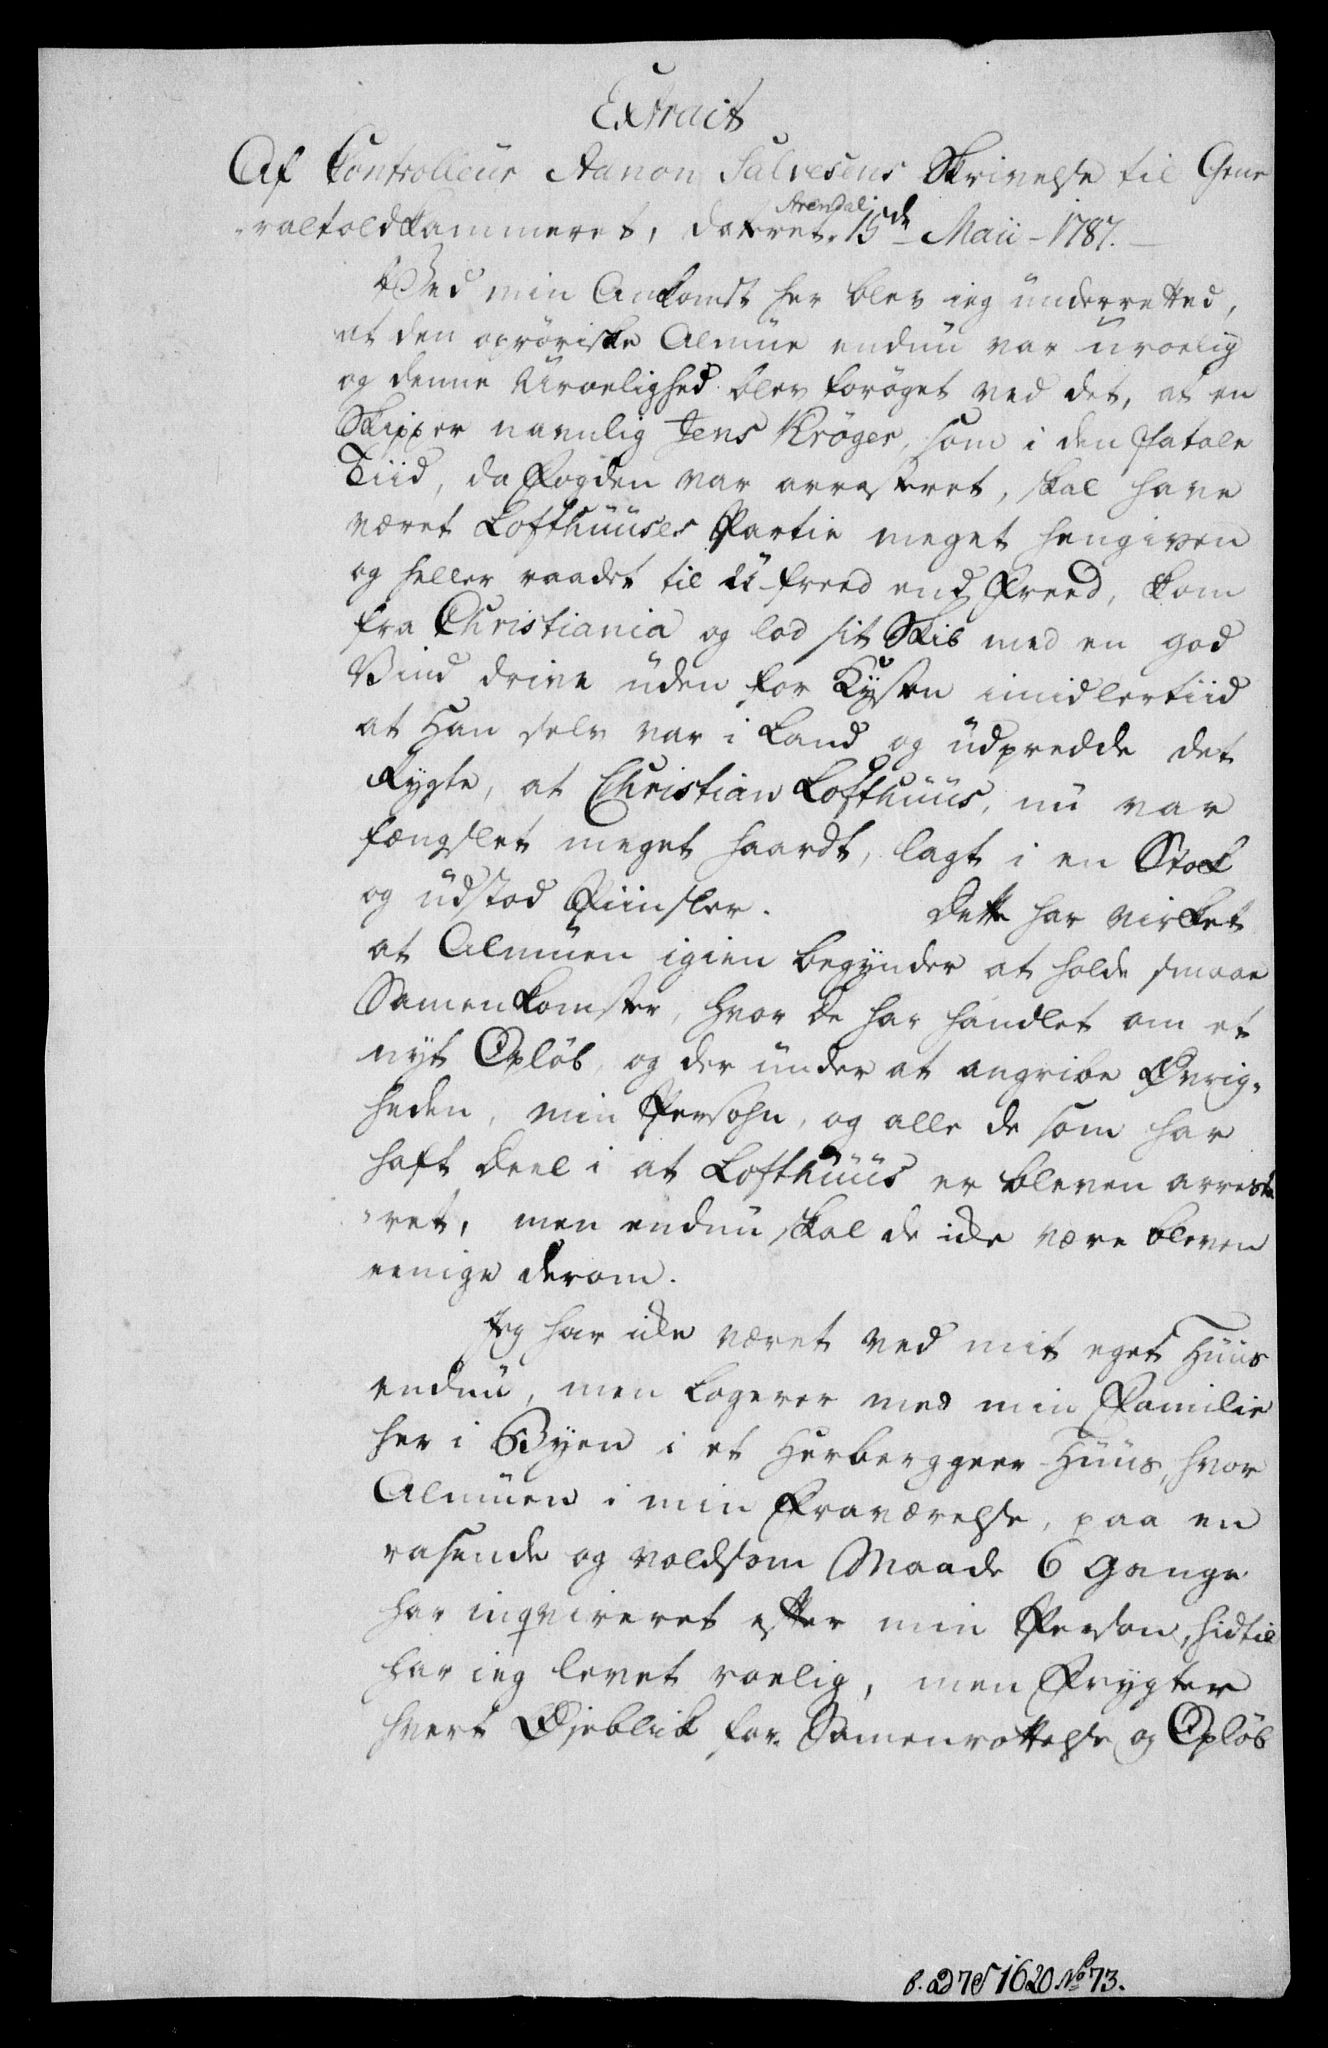 Extrait
Af Kontrolleur Aanon Salvesens Skrivelse til Gene
Arendal
-raltoldkammeret, dateret 15de Maii - 1787. —
Ved min Ankomst her blev ieg underretted,
at den oprøriske Almue endnu var uroelig
og denne Uroelighed blev forøget ved det, at en
Skipper navnlig Jens Krøger, som i den fatale
Tiid, da Fogden var arresteret, skal have
været Lofthuuses Partie meget hengiven
og heller raadet til U-freed end Freed, kom
fra Christiania og lod sit Skib med en god
Vind drive uden for Kysten imidlertiid
at Han selv var i Land og udspredde det
Rygte, at Christian Lofthuus, nu var
fængslet meget haardt, lagt i en Stok
og udstod Piinsler. Dette har virket
at Almuen igien begynder at holde smaae
Samenkomster, hvor de har handlet om et
nyt Opløb, og der under at angribe Øvrig-
heden, min Persohn, og alle de som har
haft Deel i at Lofthuus er bleven arreste
-ret, men endnu skal de icke være bleven
eenige derom.
Jeg har icke været ved mit eget Huus
endnu, men logerer med min Familie
her i Byen i et Herberggeer-Huus, hvor
Almuen i min Fraværelse, paa en
rasende og voldsom Maade 6 Gange
har inqvireret efter min Person, hidtil
har ieg levet roelig, men Frygter
hvert Øjeblik for Samenrottelse og Opløb
No 73.